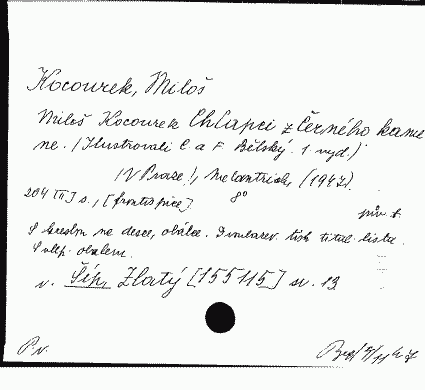 Kocourek, Miloš
Miloš Kocourek Chlapci z Černého kame
ne. /Ilustrovali C. a F. Bělský. 1. vyd./
/V Praze/, Melantrich, (1947).
204 [II] s., [frontispice]. 8°
pův. f.
S kresbou na desce, obálce. Dvoubarev. tisk titul. listu.
S ulep. obalem.
v. Šíp, Zlatý [155115] sv. 13
P. v.